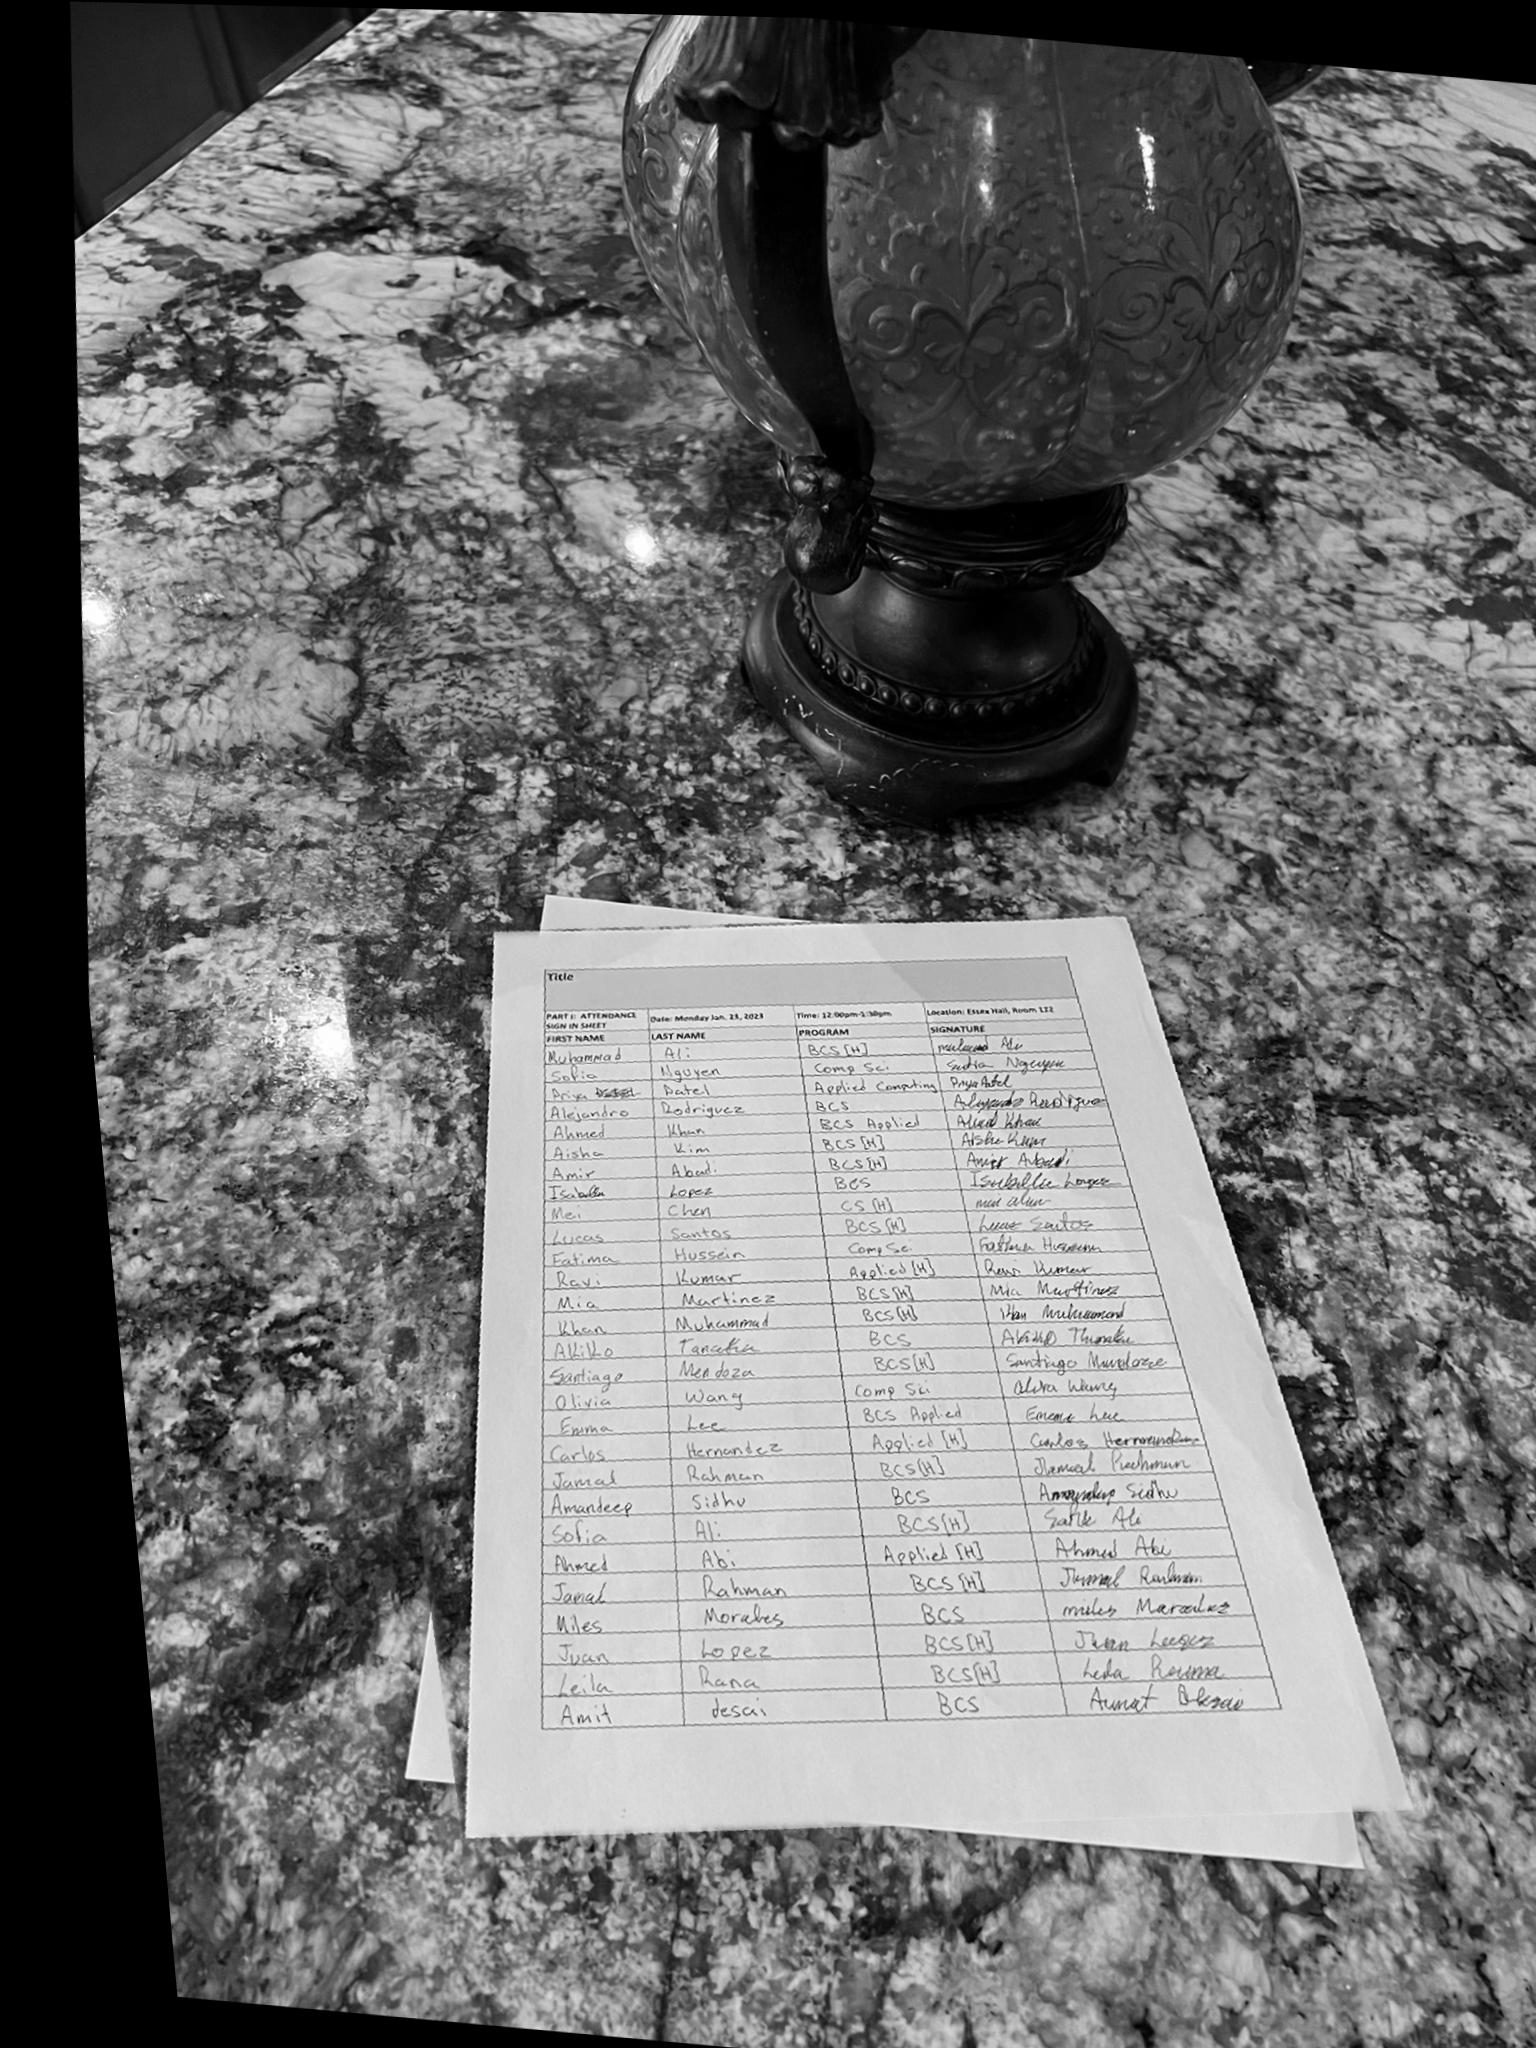 Title
PART I: ATTENDANCE SIGN IN SHEET Date: Monday Jan. 23, 2023 Time: 12:00pm-1:30pm Location: Essex Hall, Room 122
FIRST NAME LAST NAME PROGRAM SIGNATURE
Muhammad Ali BCS [H] Ali
Sofia Nguyen Comp Sci Sofia Nguyen
Priya Patel Applied Computing Priya Patel
Alejandro Rodriguez BCS Alejandro Rodriguez
Ahmed Khan BCS Applied Ahmed Khan
Aisha Kim BCS [H] Aisha Kim
Amir Abadi BCS [H] Amir Abadi
Isabella Lopez BCS Isabella Lopez
Mei Chen CS [H]
Lucas Santos BCS [H] Lucas Santos
Fatima Hussein Comp Sci Fatima Hussein
Ravi Kumar Applied [H] Ravi Kumar
Mia Martinez BCS[H] Mia Martinez
Khan Muhammad BCS[H] Khan Muhammad
AKiKo Tanaka BCS
Santiago Mendoza BCS[H] Santiago Mendoza
Olivia Wang Comp Sci Wang
Emma Lee BCS Applied Emma Lee
Carlos Hernandez Applied [H] Carlos Hernandez
Jamal Rahman BCS[H] Jamal Rahman
Amandeep Sidhu BCS Amandeep Sidhu
Sofia Ali BCS[H] Ali
Ahmed Abi Applied [H] Ahmed Abi
Jamal Rahman BCS [H] Jamal Rahman
Miles Morales BCS miles
Juan Lopez BCS[H] Juan Lopez
Leila Rana BCS[H] Leila
Amit desai BCS